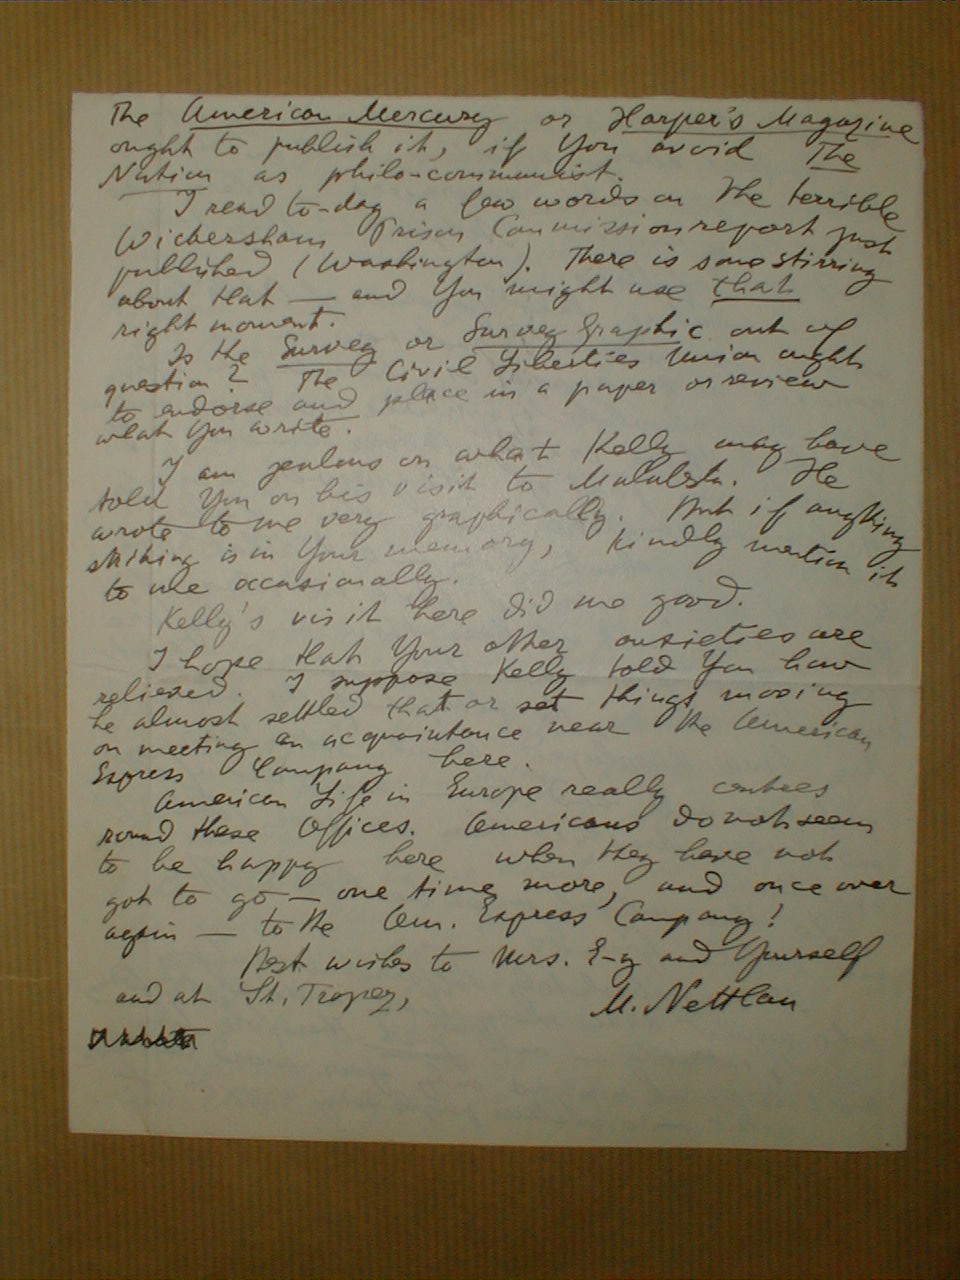 The American Mercury or Harper's Magazine
ought to publish it, if You avoid The
Nation as philo-communist.
I read to-day a few words on the terrible
Wickersham Prison Commission report just
published (Washington). There is some stirring
about that — and You might use that
right moment.
Is the Survey or Survey Graphic out of
question? The Civil Liberties Union ought
to endorse and place in a paper or review
what You write.
I am jealous on what Kelly may have
told You on his visit to Malatesta. He
wrote to me very graphically. But if anything
striking is in Your memory, kindly mention it
to me occasionally.
Kelly's visit here did me good.
I hope that Your other anxieties are
relieved. I suppose Kelly told You how
he almost settled that or set things moving
on meeting an acquaintance near the American
Express Company here.
American Life in Europe really centres
round these Offices. Americans do not seem
to be happy here when they have not
got to go — one time more, and once over
again — to the Am. Express Company!
Best wishes to Mrs. E-g and Yourself
and at St. Tropez,
M. Nettlau